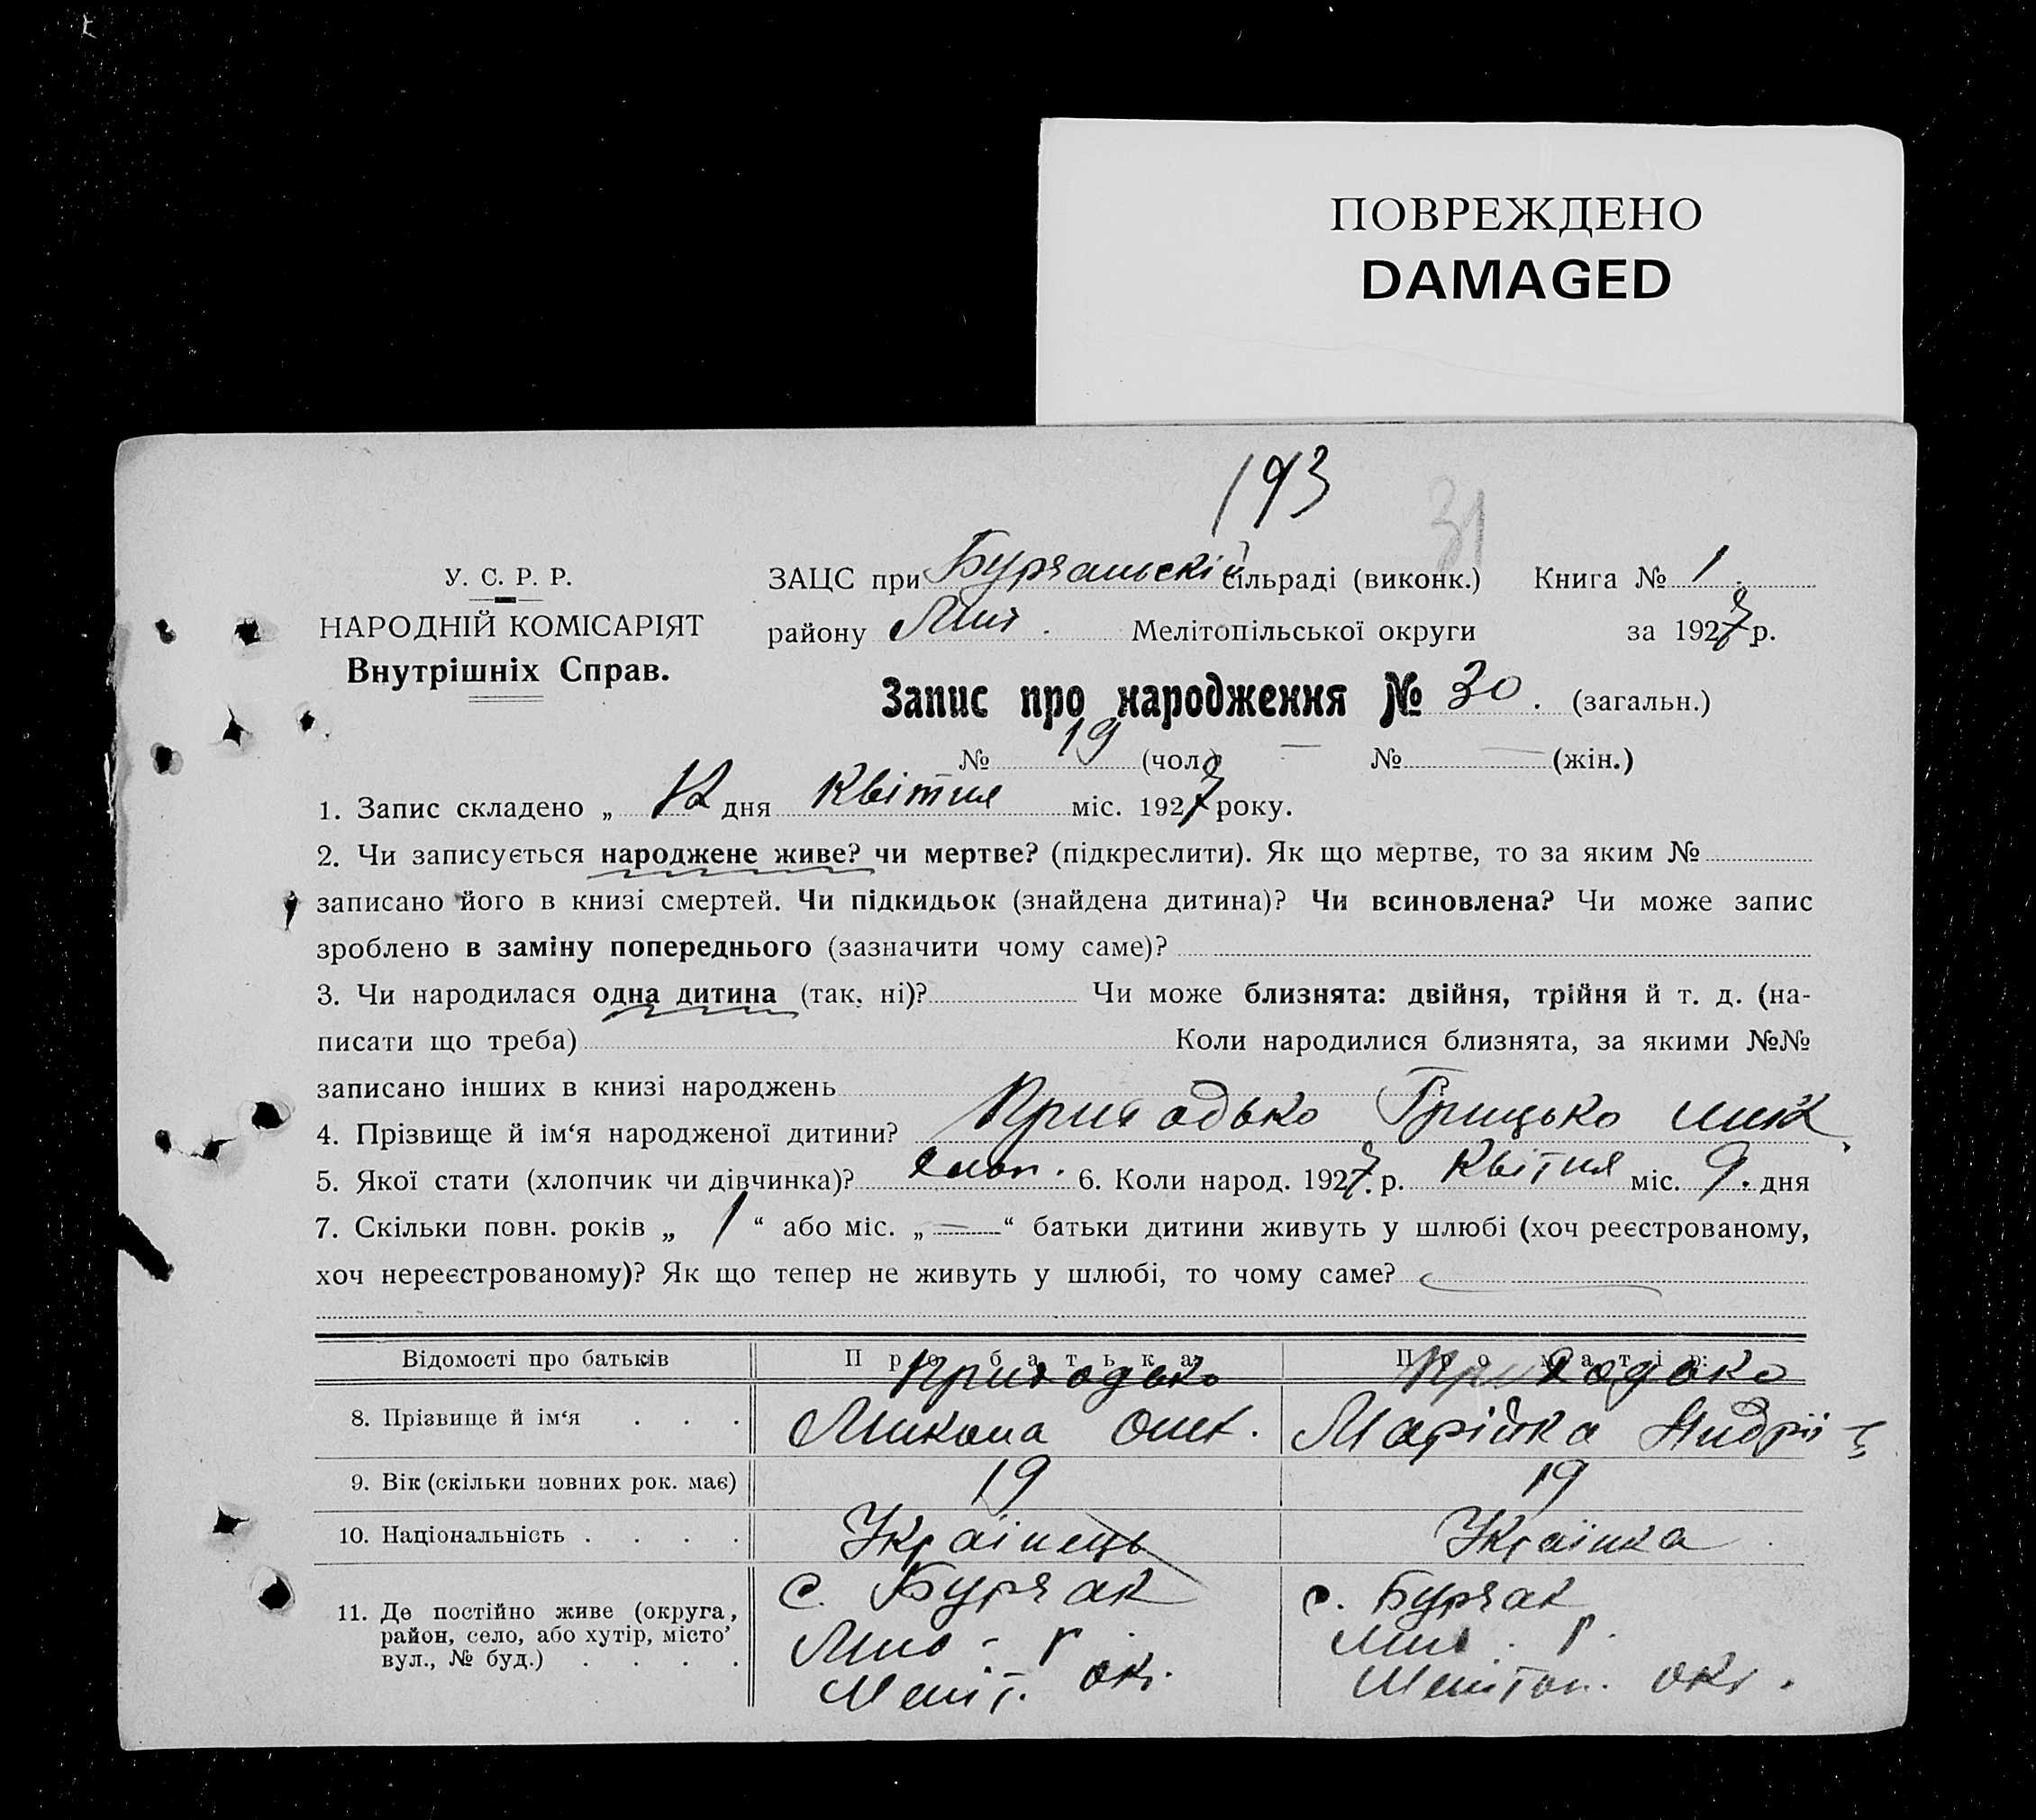 ПОВРЕЖДЕНО
DAMAGED
193
31
У. С. Р. Р.
НАРОДНІЙ КОМІСАРІЯТ
Внутрішніх Справ.
ЗАЦС при Бурчальскій сільраді (виконк.) Книга № 1.
району Мих. Мелітопільської округи за 1927 р.
Запис про народження № 30. (загальн.)
№ 19 (чол.) — № — (жін.)
1. Запис складено „ 12 дня Квітня міс. 1927 року.
2. Чи записується народжене живе? чи мертве? (підкреслити). Як що мертве, то за яким №
записано його в книзі смертей. Чи підкидьок (знайдена дитина)? Чи всиновлена? Чи може запис
зроблено в заміну попереднього (зазначити чому саме)?
3. Чи народилася одна дитина (так, ні)? Чи може близнята: двійня, трійня й т. д. (на-
писати що треба) Коли народилися близнята, за якими №№
записано інших в книзі народжень
4. Прізвище й ім‘я народженої дитини? Приходько Грицько Мик.
5. Якої стати (хлопчик чи дівчинка)? хлоп. 6. Коли народ. 1927 р. Квітня міс. 9. дня
7. Скільки повн. років „ 1 “ або міс. „ — “ батьки дитини живуть у шлюбі (хоч реєстрованому,
хоч нереєстрованому)? Як що тепер не живуть у шлюбі, то чому саме?
Відомості про батьків Про батька: Про матір:
8. Прізвище й ім‘я . . . Приходько Приходько
Микола Марійка Андрії
9. Вік (скільки повних рок. має) 19 19
10. Національність . . . . Українець Українка
11. Де постійно живе (округа, с. Бурчак с. Бурчак
район, село, або хутір, місто, Мих. р. Мих. р.
вул., № буд.) . . . . Меліт. окр. Мелітоп. окр.